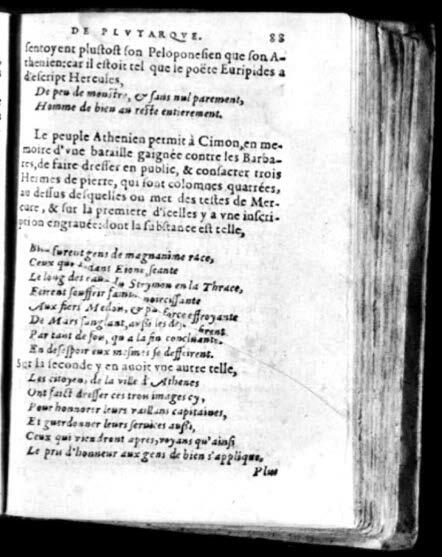 DE PLVTARQVE. 88
sentoyent plustost son Peloponesien que son A-
thenien: car il estoit tel que le poëte Euripides a
descript Hercules,
De peu de monstre, & sans nul parement,
Homme de bien au reste entierement.
Le peuple Athenien permit à Cimon, en me-
moire d'vne bataille gaignée contre les Barba-
res, de faire dresser en public, & consacrer trois
Hermes de pierre, qui sont colomnes quarrées,
au dessus desquelles on met des testes de Mer-
cure, & sur la premiere d'icelles y a vne inscri-
ption engrauée: dont la substance est telle,
Bien furent gens de magnanime race,
Ceux que dedans Eione seante
Le long des eaux du Strymon en la Thrace,
Feirent souffrir famine noircissante
Aux fiers Medois, & par force effroyante
De Mars sanglant, aussi les
Par tant de fois, qu'à la fin concluante
En desespoir eux mesmes se deffeirent.
Sur la seconde y en auoit vne autre telle,
Les citoyens de la ville d'Athenes
Ont faict dresser ces trois images cy,
Pour honnorer leurs vaillans capitaines,
Et guerdonner leurs seruices aussi,
Ceux qui viendront apres, voyans qu'ainsi
Le pris d'honneur aux gens de bien s'applique,
Plus